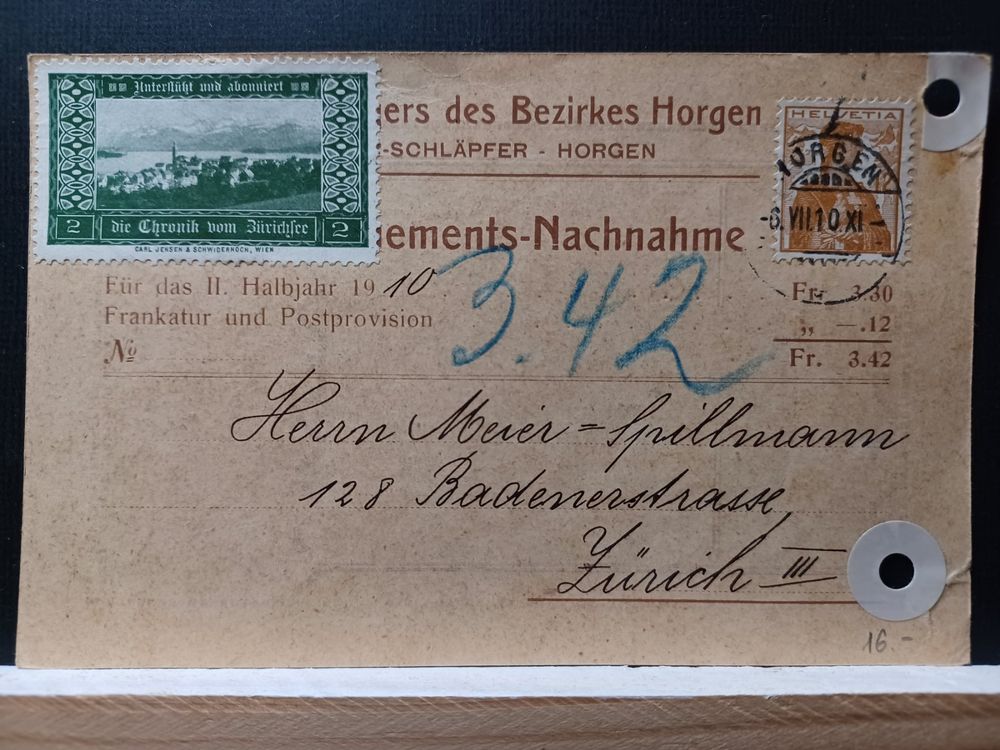 Unterstützt und abonniert
2 die Chronik vom Zürichsee 2
CARL JENSEN & SCHWIDERNOCH, WIEN
ers des Bezirkes Horgen
-SCHLÄPFER - HORGEN
ements-Nachnahme
HELVETIA
HORGEN
-6.VII.10.XI-
3.42
Für das II. Halbjahr 1910
Fr. 3.30
Frankatur und Postprovision
„ —.12
No
Fr. 3.42
Herrn Meier=Spillmann
128 Badenerstrasse
Zürich III
16.-